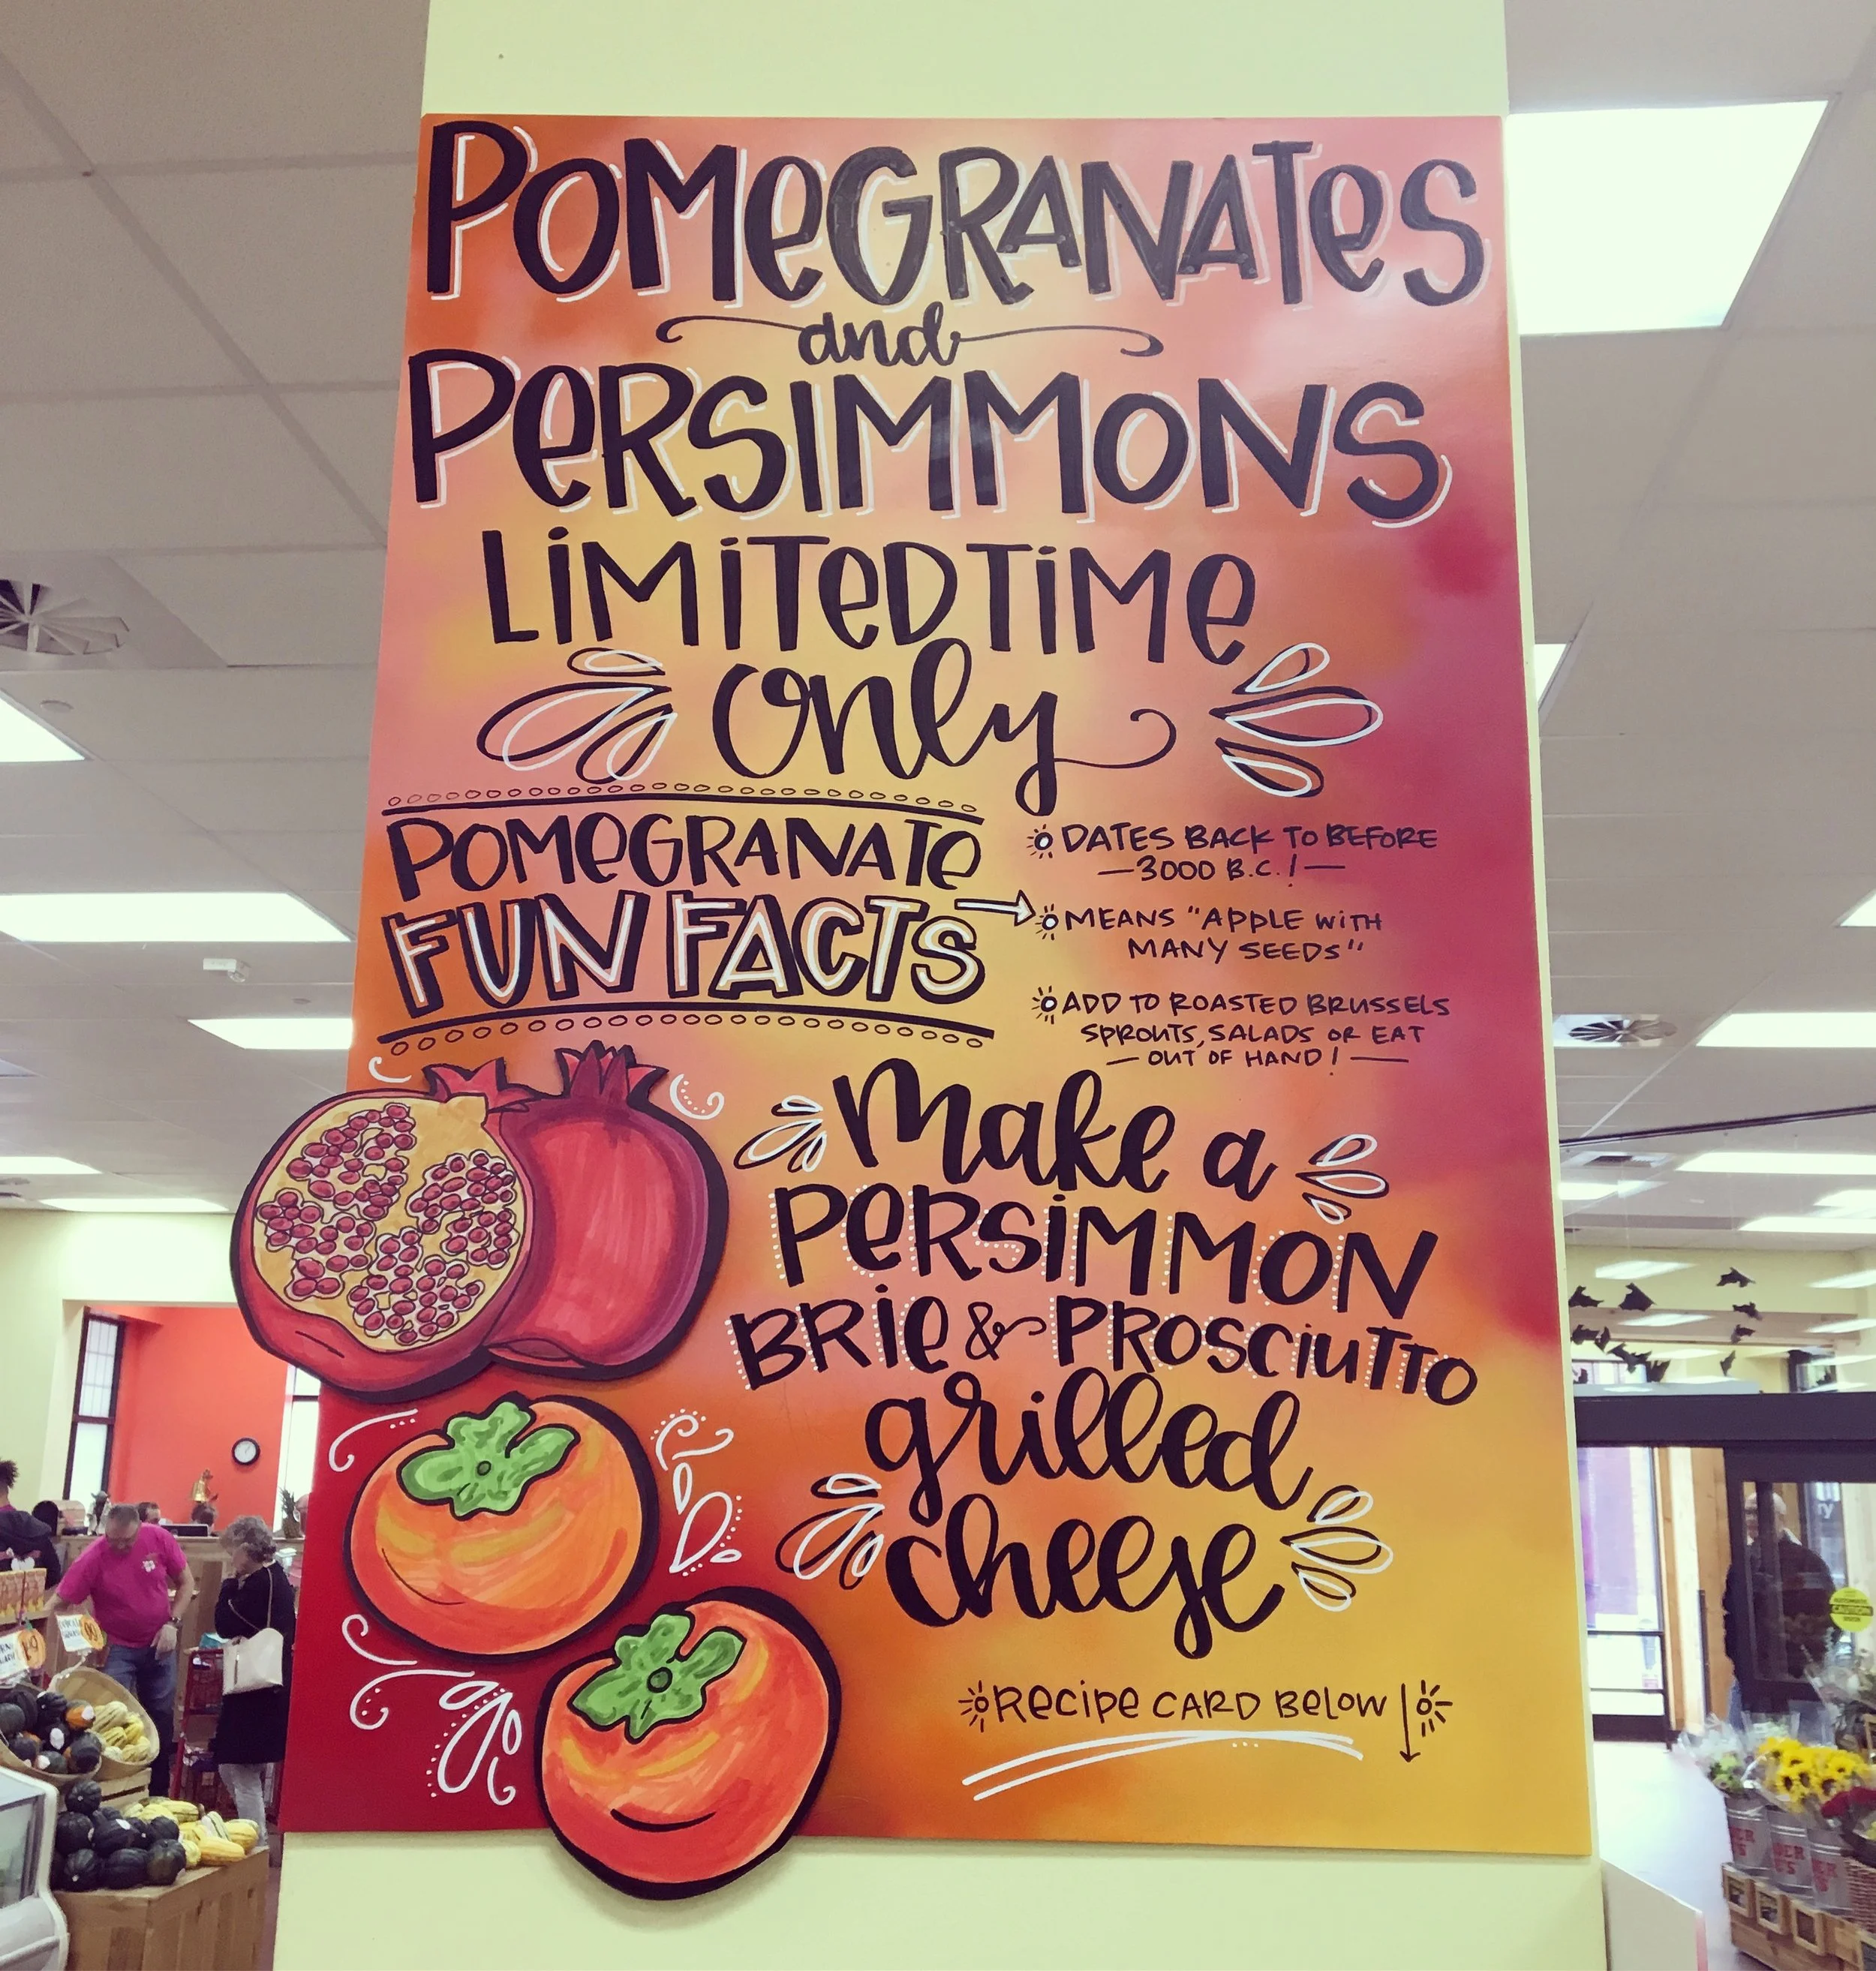 POMeGRANATeS
and
PeRSIMMONS
LiMiTeD TiMe
only
POMeGRANATe
FUN FACTS
DATES BACK TO BEFORE
—3000 B.C.!—
MEANS "APPLE WiTH
MANY SEEDS"
ADD TO ROASTED BRUSSELS
SPROUTS, SALADS OR EAT
— OUT OF HAND! —
make a
PeRSiMMON
BRie & PROSCiuTTO
grilled
cheese
ReCiPe CARD BeLOW